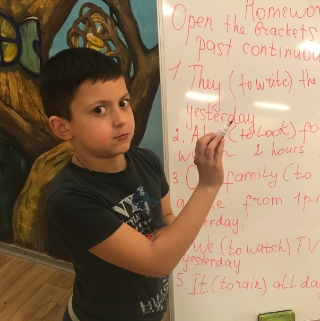 Homework
Open the brackets
past continuous
1. They (to write) the
yesterday
2. (to look) fo
2 hours
3. family (to
from 1 p
yesterday.
We (to watch) TV
yesterday
5. It (to rain) all da
NY